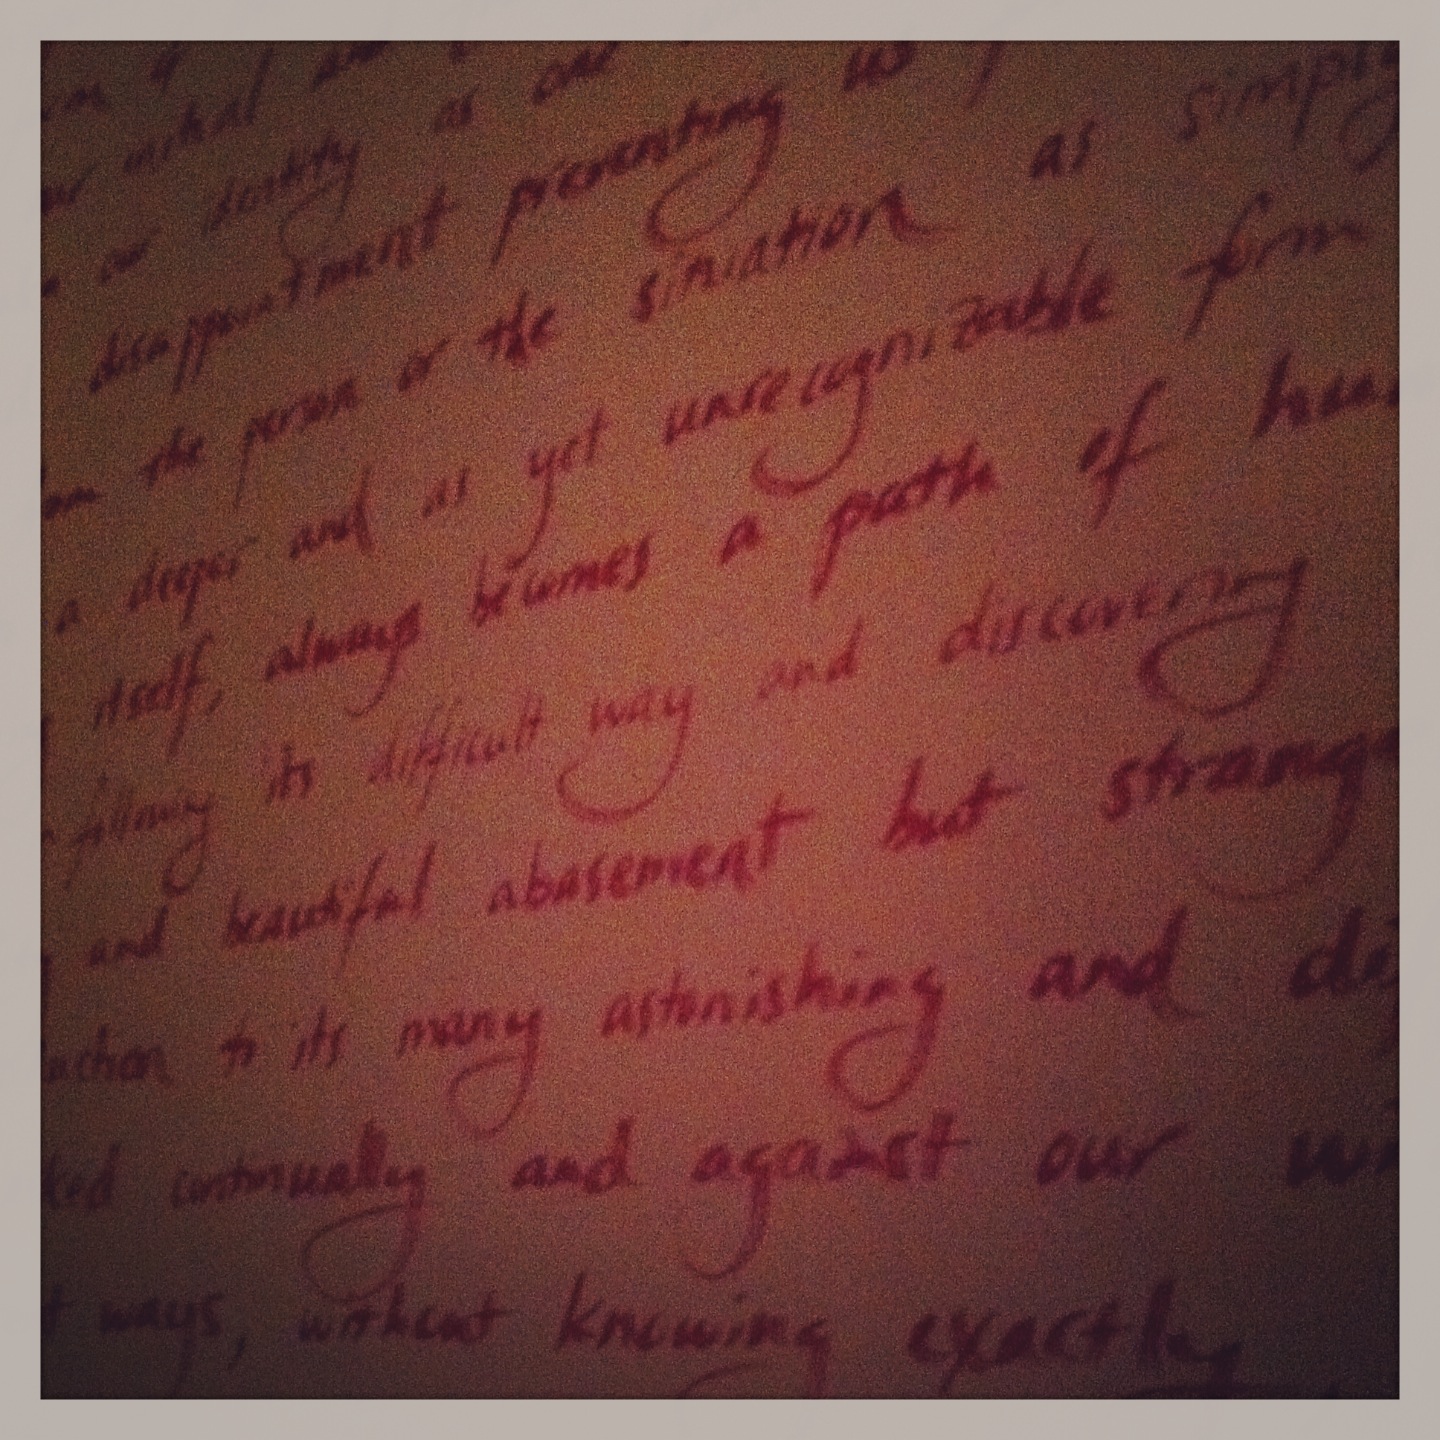 as our
our identity as
disappointment preventing us
the person or the situation as simply
a deeper and as yet unrecognizable form
itself, always becomes a path of
its difficult way and discovering
and beautiful abasement but
to its many astonishing and
continually and against our
ways, without knowing exactly